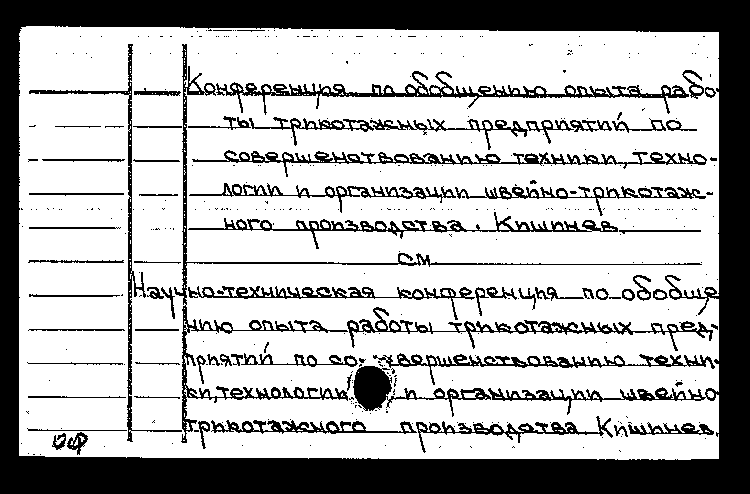 Конференция по обобщению опыта рабо-
ты трикотажных предприятий по
совершенствованию техники, техно-
логии и организации швейно-трикотаж-
ного производства. Кишинев.
см
Научно-техническая конференция по обобще
нию опыта работы трикотажных пред-
приятий по со- вершенствованию техни-
ки, технологии и организации швейно
трикотажного производства Кишинев.